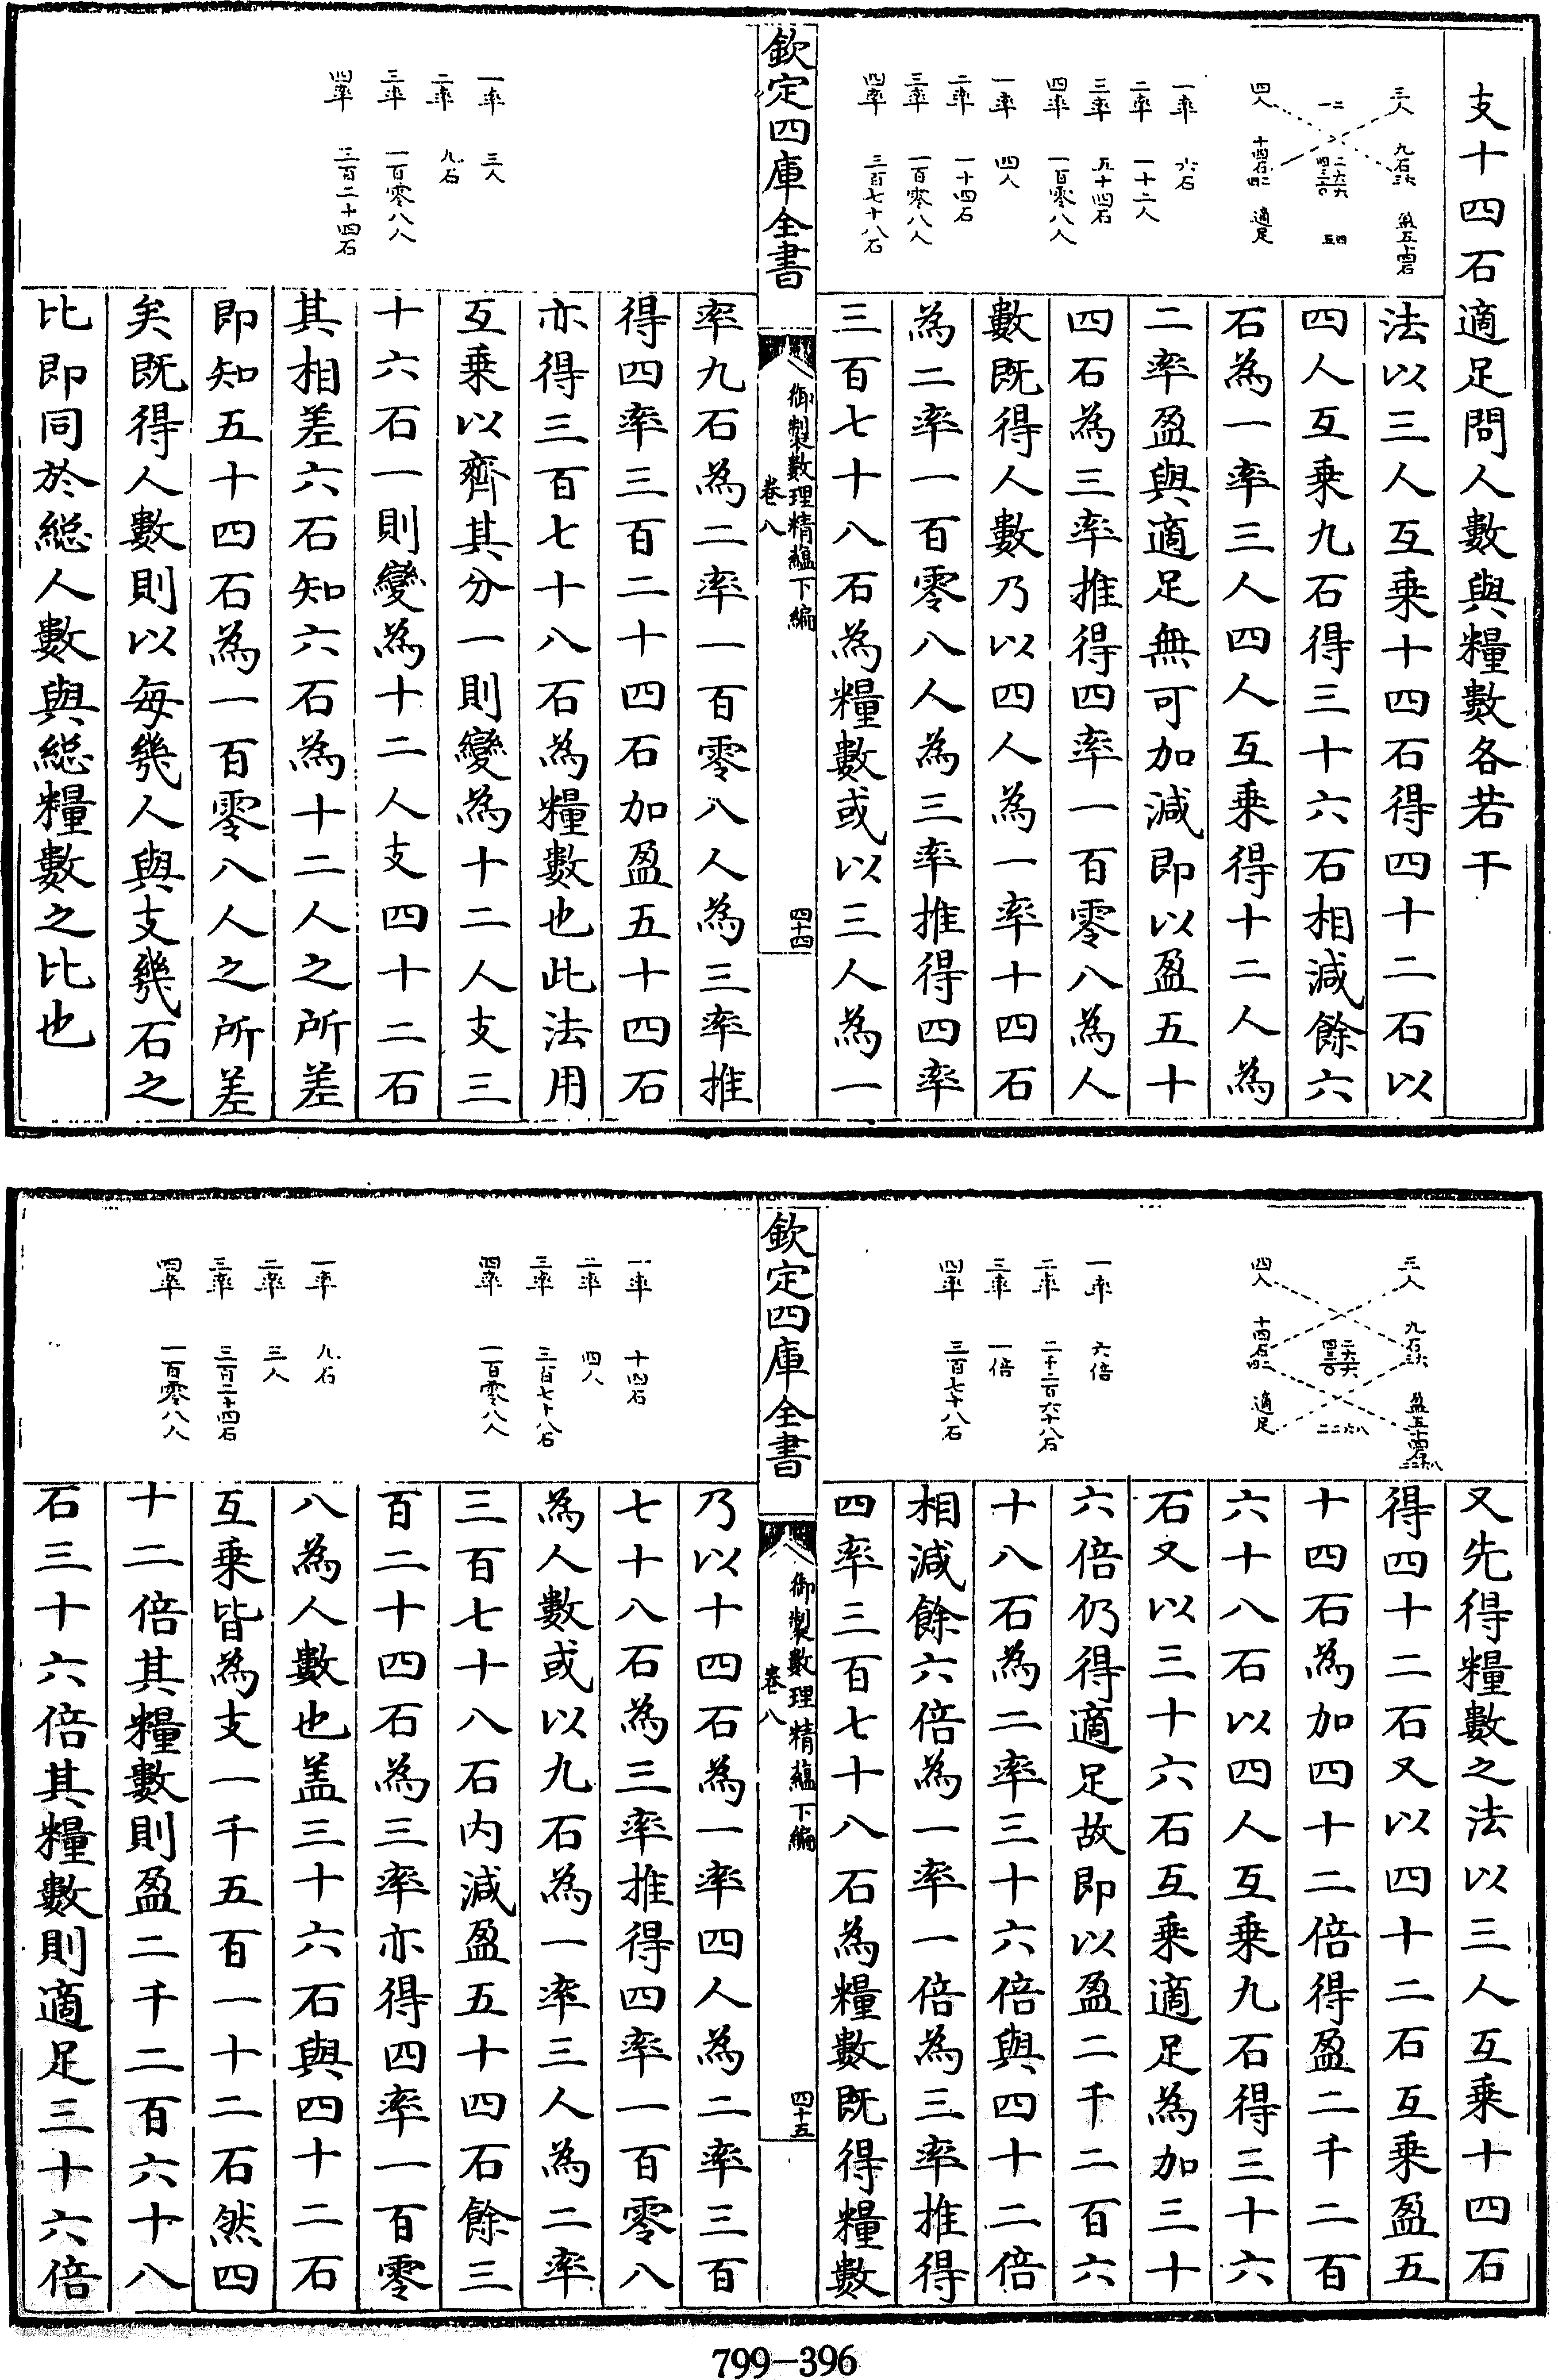 支十四石適足問人數與糧數各若干
三人　九石　三六　盈五十四石
一二　二六六　四三〇　五四
四人　十四石　四二　適足
法以三人互乘十四石得四十二石以
四人互乘九石得三十六石相減餘六
石為一率三人四人互乘得十二人為
二率盈與適足無可加減即以盈五十
四石為三率推得四率一百零八為人
數既得人數乃以四人為一率十四石
為二率一百零八人為三率推得四率
三百七十八石為糧數或以三人為一
一率　六石
二率　一十二人
三率　五十四石
四率　一百零八人
一率　四人
二率　一十四石
三率　一百零八人
四率　三百七十八石
欽定四庫全書
御製數理精蘊下編
卷八
四十四
率九石為二率一百零八人為三率推
得四率三百二十四石加盈五十四石
亦得三百七十八石為糧數也此法用
互乘以齊其分一則變為十二人支三
十六石一則變為十二人支四十二石
其相差六石知六石為十二人之所差
即知五十四石為一百零八人之所差
矣既得人數則以每幾人與支幾石之
比即同於総人數與総糧數之比也
一率　三人
二率　九石
三率　一百零八人
四率　三百二十四石
三人　九石　三六　盈五十四石　二二六八
四人　十四石　四二　適足
又先得糧數之法以三人互乘十四石
得四十二石又以四十二石互乘盈五
十四石為加四十二倍得盈二千二百
六十八石以四人互乘九石得三十六
石又以三十六石互乘適足為加三十
六倍仍得適足故即以盈二千二百六
十八石為二率三十六倍與四十二倍
相減餘六倍為一率一倍為三率推得
四率三百七十八石為糧數既得糧數
一率　六倍
二率　二千二百六十八石
三率　一倍
四率　三百七十八石
欽定四庫全書
御製數理精蘊下編
卷八
四十五
乃以十四石為一率四人為二率三百
七十八石為三率推得四率一百零八
為人數或以九石為一率三人為二率
三百七十八石内減盈五十四石餘三
百二十四石為三率亦得四率一百零
八為人數也盖三十六石與四十二石
互乘皆為支一千五百一十二石然四
十二倍其糧數則盈二千二百六十八
石三十六倍其糧數則適足三十六倍
一率　十四石
二率　四人
三率　三百七十八石
四率　一百零八人
一率　九石
二率　三人
三率　三百二十四石
四率　一百零八人
799-396